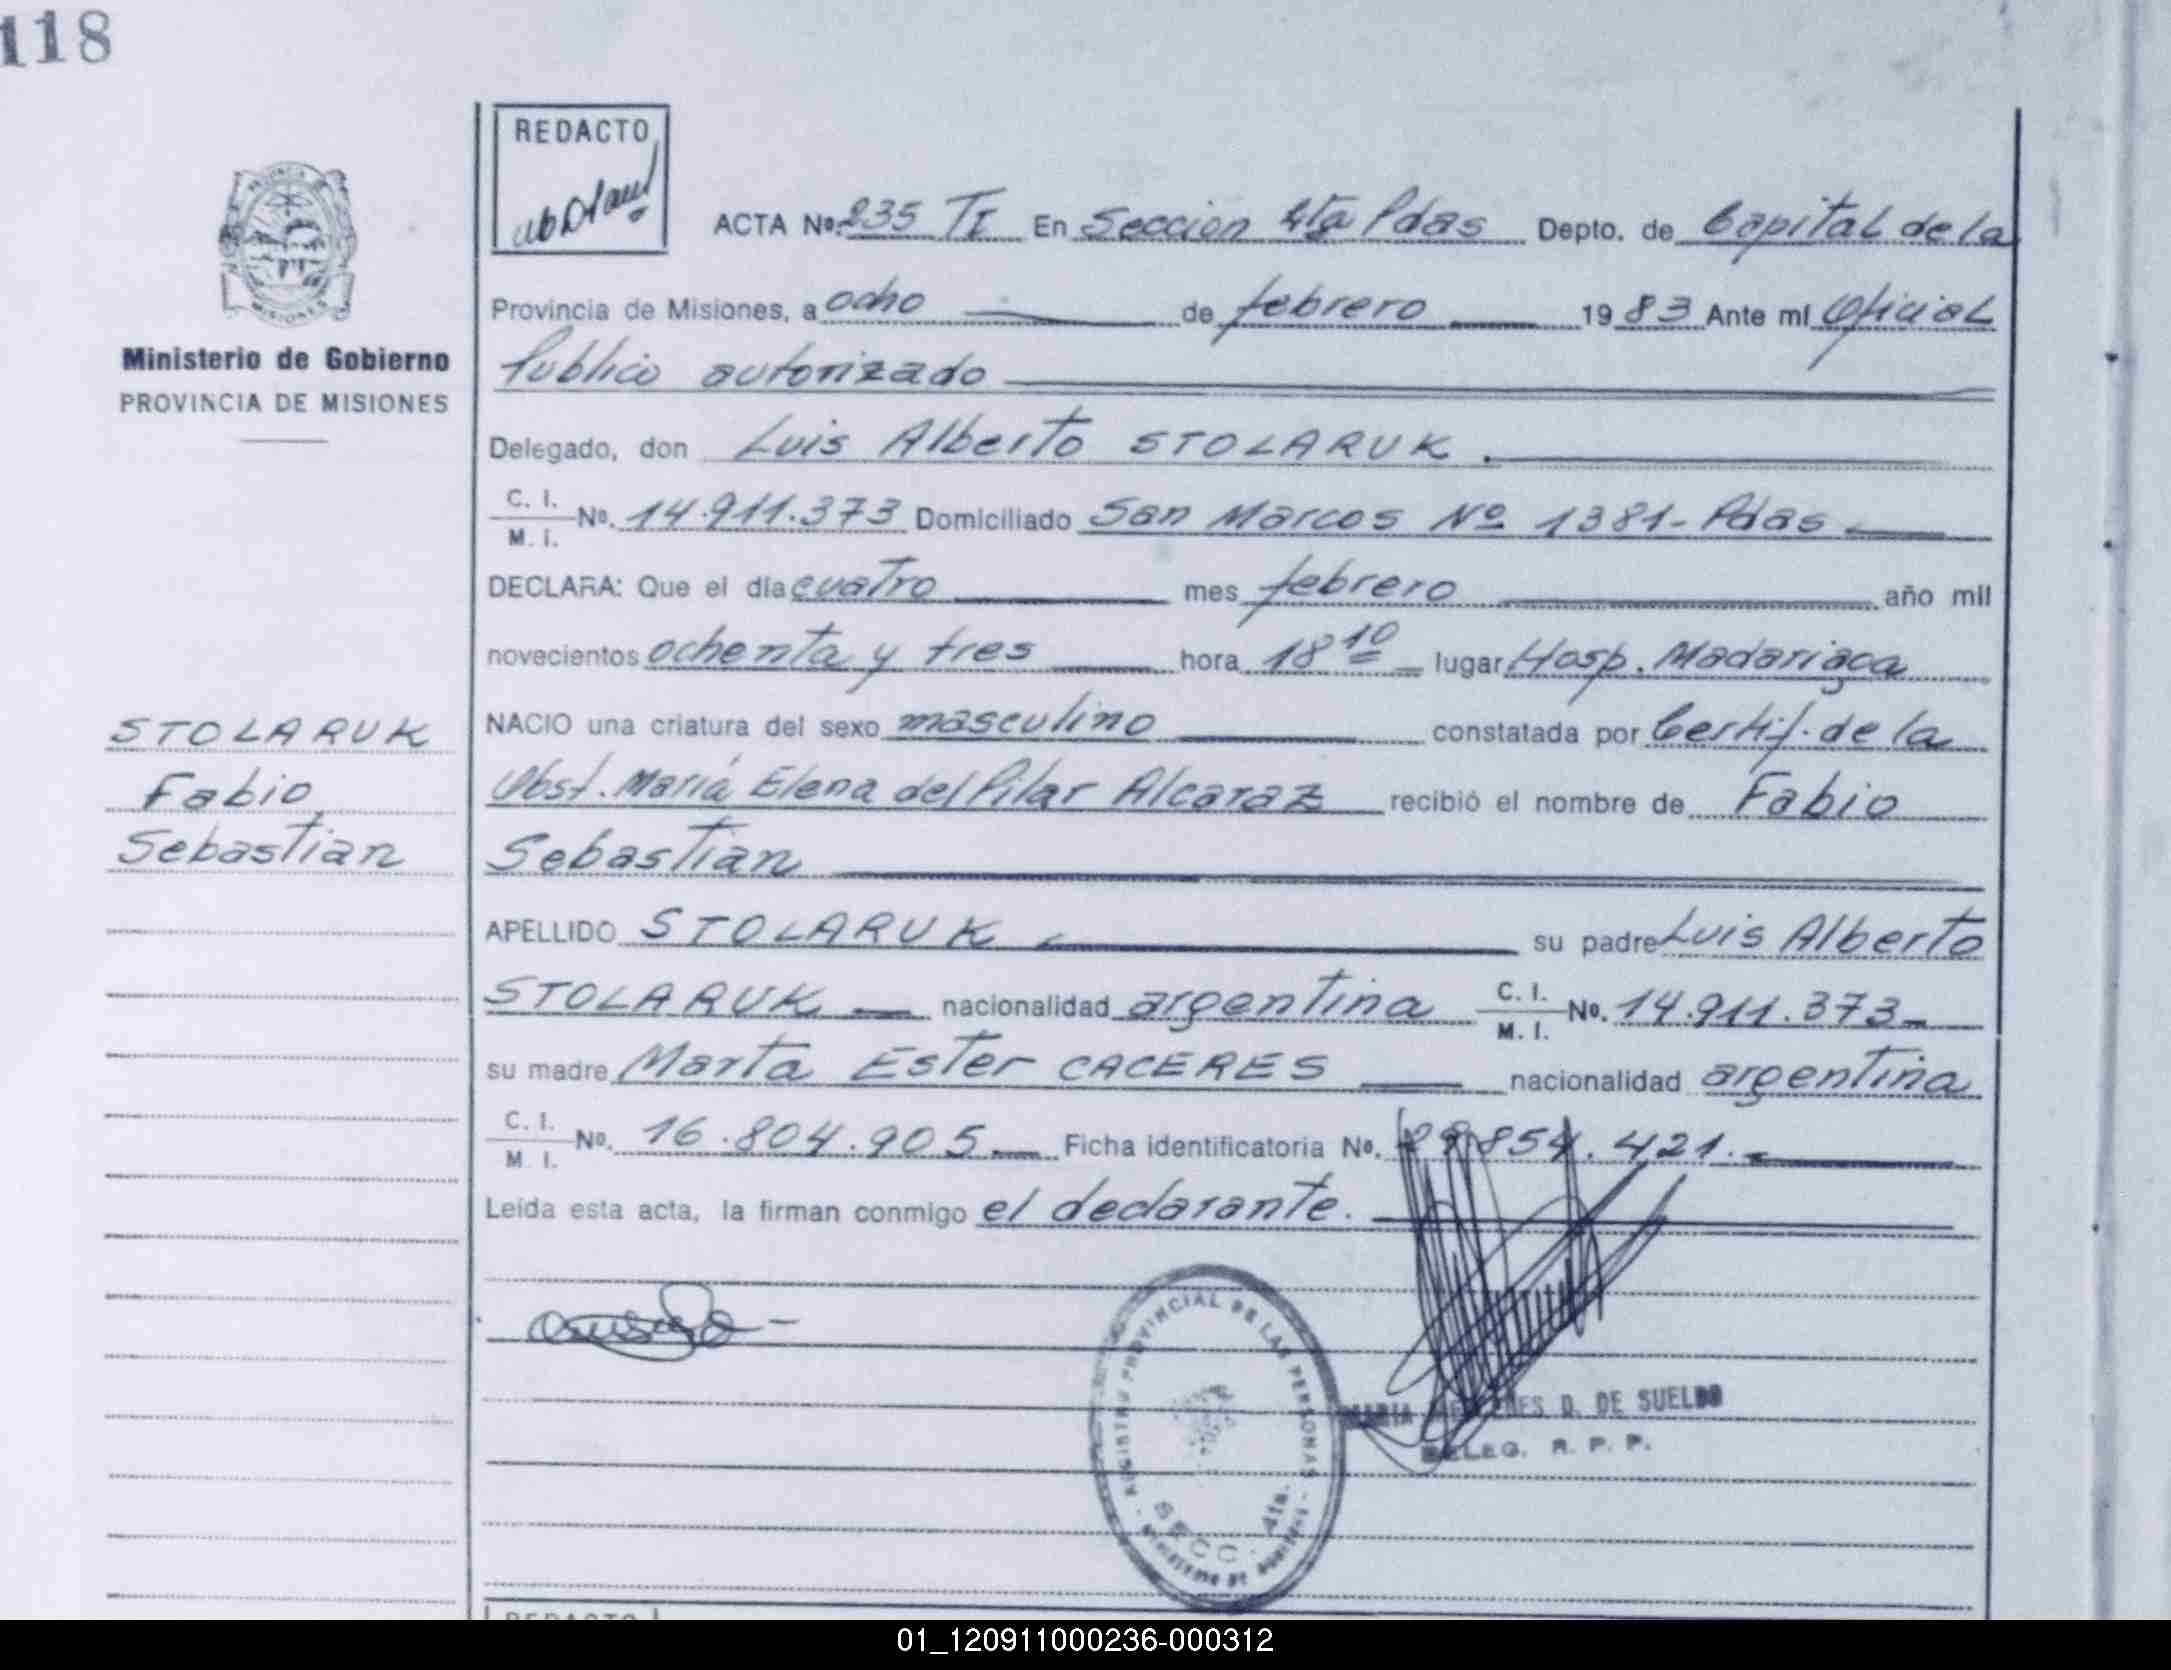 118
REDACTO
ACTA Nº. 235 TI En Sección 4ta Pdas Depto. de Capital de la
Provincia de Misiones, a ocho de febrero 1983 Ante mí Oficial
Público autorizado
Ministerio de Gobierno
PROVINCIA DE MISIONES
Delegado, don Luis Alberto STOLARUK.
C. I.
M. I. Nº. 14.911.373 Domiciliado San Marcos Nº 1381-Pdas
DECLARA: Que el día cuatro mes febrero año mil
novecientos ochenta y tres hora 18 10 lugar Hosp. Madariaga
NACIO una criatura del sexo masculino constatada por Certif. de la
Obst. María Elena del Pilar Alcaraz recibió el nombre de Fabio
Sebastian
STOLARUK
Fabio
Sebastian
APELLIDO STOLARUK su padre Luis Alberto
STOLARUK nacionalidad argentina C. I.
M. I. Nº. 14.911.373
su madre Marta Ester CACERES nacionalidad argentina
C. I.
M. I. Nº. 16.804.905 Ficha identificatoria Nº. 854.421.
Leída esta acta, la firman conmigo el declarante.
REGISTRO PROVINCIAL DE LAS PERSONAS
SECC. 4ta.
MARIA D. DE SUELDO
DELEG. R. P. P.
REDACTO
01_120911000236-000312